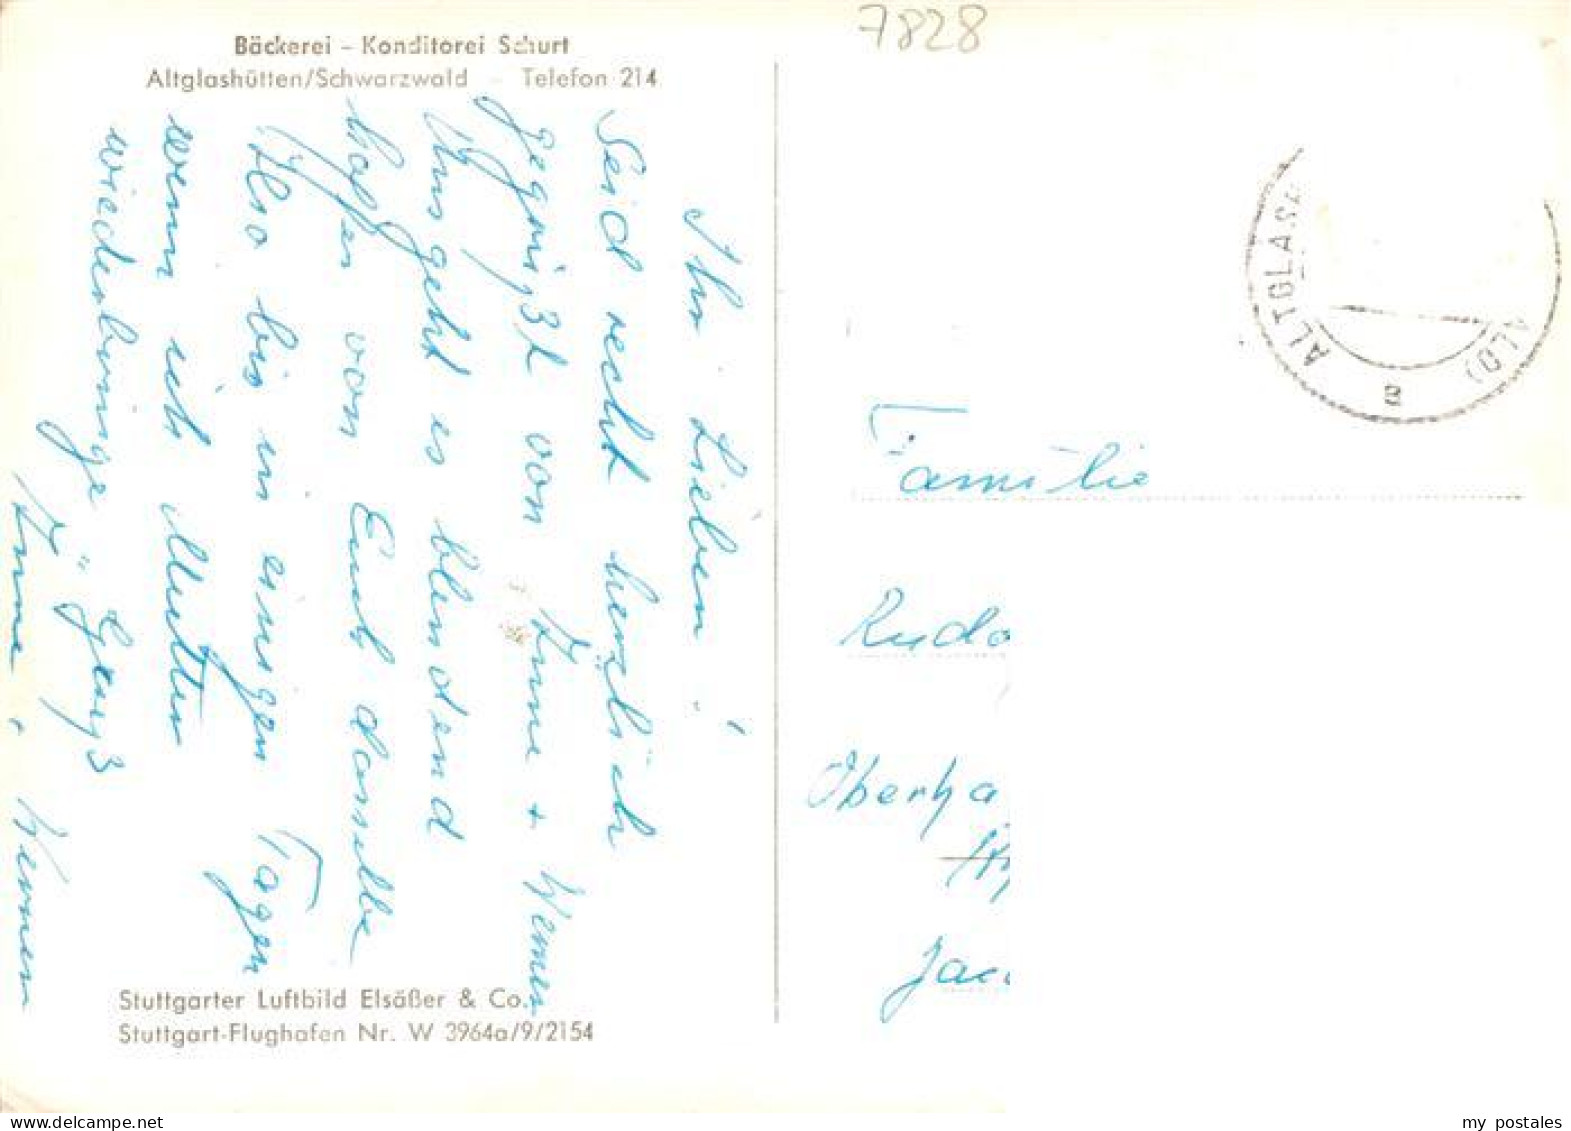 Bäckerei – Konditorei Schurt
Altglashütten/Schwarzwald – Telefon 214
Ihr Lieben!
Seid recht herzlich
gegrüßt von Anne + Werner
Uns geht es blendend
hoffen von Euch dasselbe
Also bis in einigen Tagen
wenn ich Mutter
wiederbringe. Gruß
Anne. Werner
Stuttgarter Luftbild Elsäßer & Co.
Stuttgart-Flughafen Nr. W 3964a/9/2154
7828
ALTGLASH
ALD)
a
Familie
Rudo
Oberha
Jac
my postales